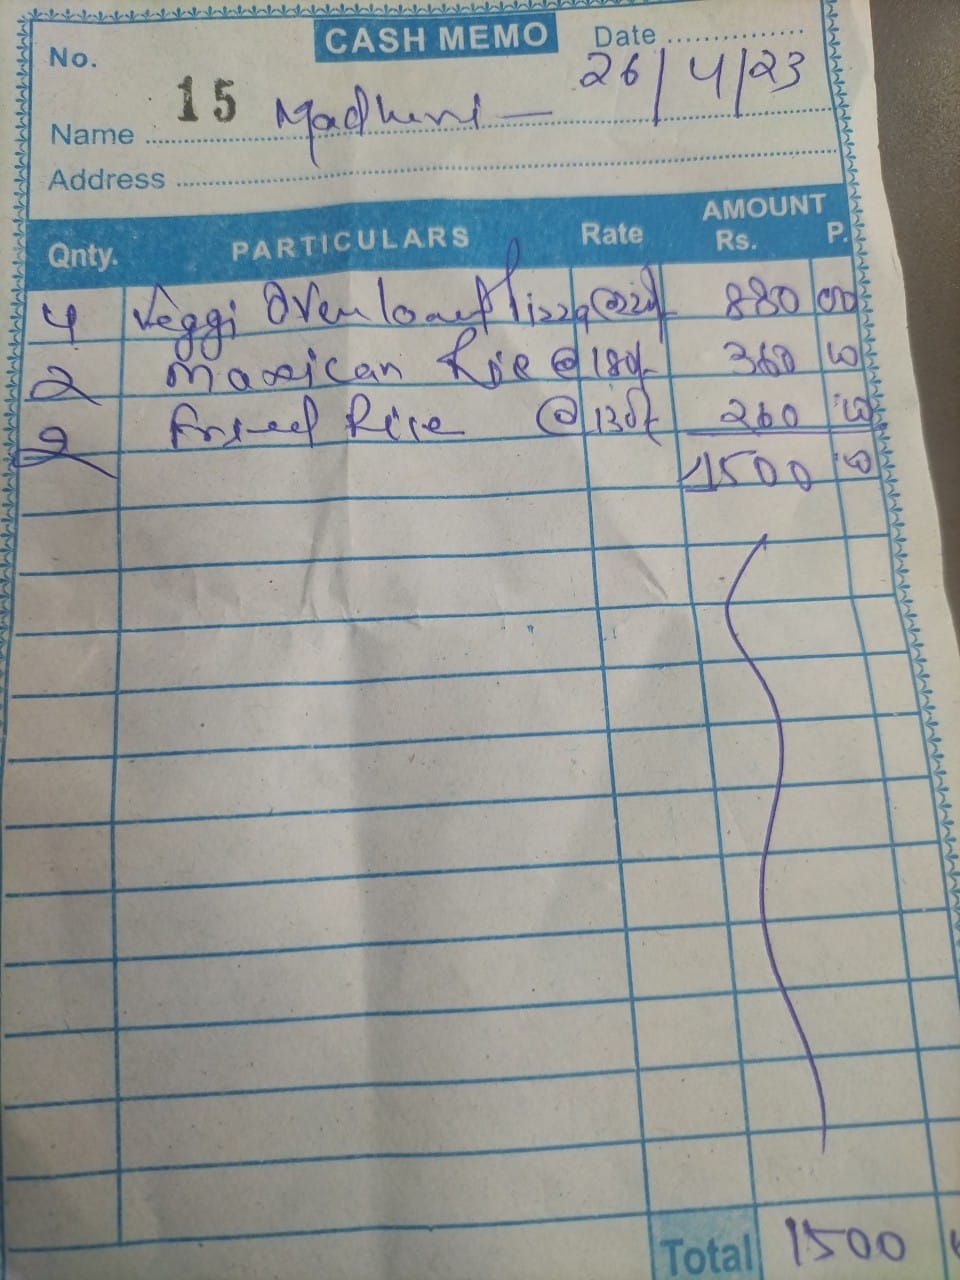 CASH MEMO
No. 15 Date ............ 26/4/23
Name Madhuri —
Address
Qnty. PARTICULARS Rate AMOUNT Rs. P.
4 Veggi Overload Pizza @220/- 880 00
2 Maxican Rice @ 180/- 360 00
2 Fried Rice @ 130/- 260 00
1500 00
Total 1500